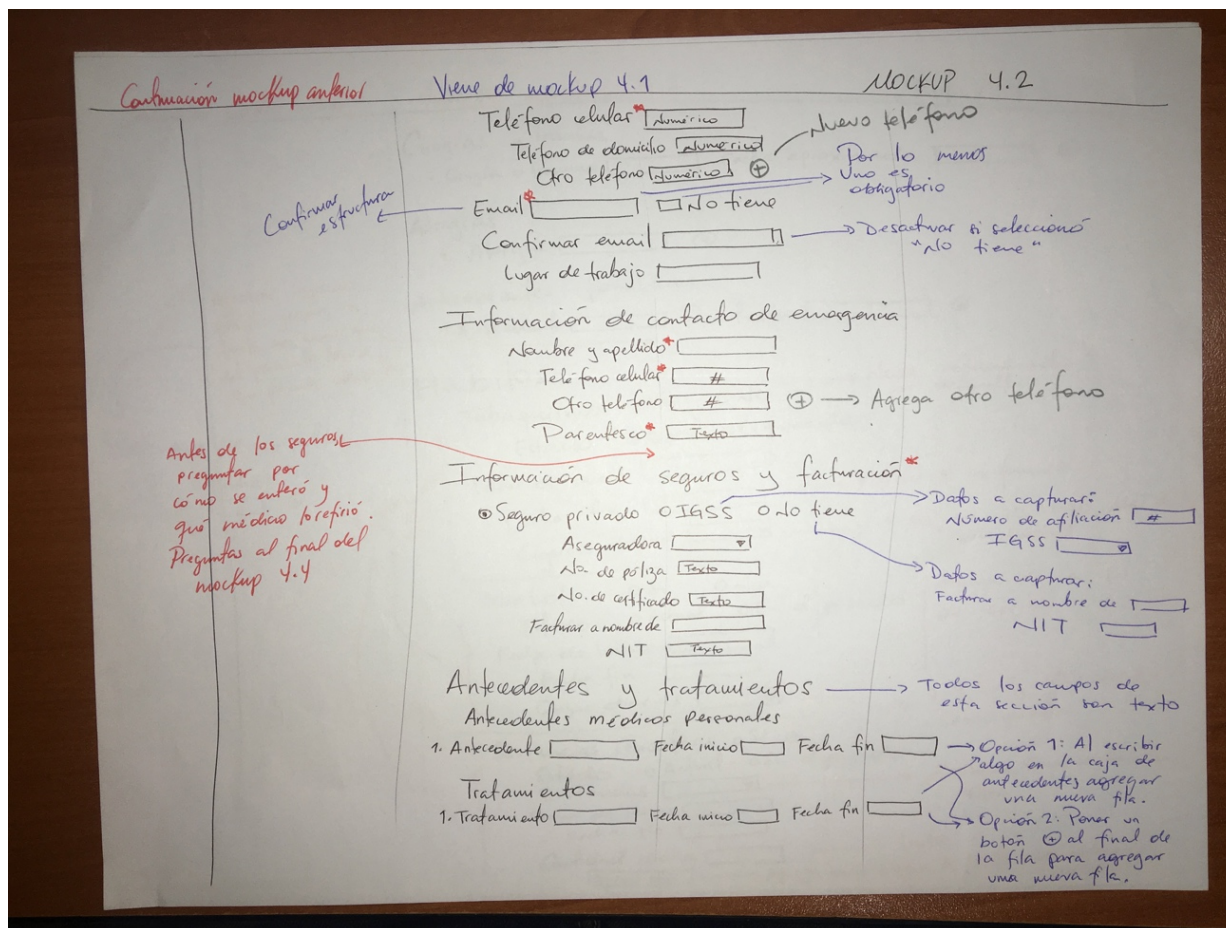 Continuación mockup anterior
Viene de mockup 4.1
MOCKUP 4.2
Teléfono celular* Numérico
Nuevo teléfono
Teléfono de domicilio Numérico
Otro teléfono Numérico +
Por lo menos
Uno es
obligatorio
Confirmar
estructura
Email* No tiene
Confirmar email
Desactivar si seleccionó
"No tiene"
Lugar de trabajo
Información de contacto de emergencia
Nombre y apellido*
Teléfono celular* #
Otro teléfono # + Agrega otro teléfono
Parentesco* Texto
Antes de los seguros
preguntar por
cómo se enteró y
qué médico lo refirió.
Preguntas al final del
mockup 4.4
Información de seguros y facturación*
Seguro privado IGSS No tiene
Datos a capturar:
Número de afiliación #
IGSS
Aseguradora
No. de póliza Texto
No. de certificado Texto
Facturar a nombre de
NIT Texto
Datos a capturar:
Facturar a nombre de
NIT
Antecedentes y tratamientos
Todos los campos de
esta sección son texto
Antecedentes médicos personales
1. Antecedente Fecha inicio Fecha fin
Opción 1: Al escribir
algo en la caja de
antecedentes agregar
una nueva fila.
Tratamientos
1. Tratamiento Fecha inicio Fecha fin
Opción 2: Poner un
botón + al final de
la fila para agregar
una nueva fila.